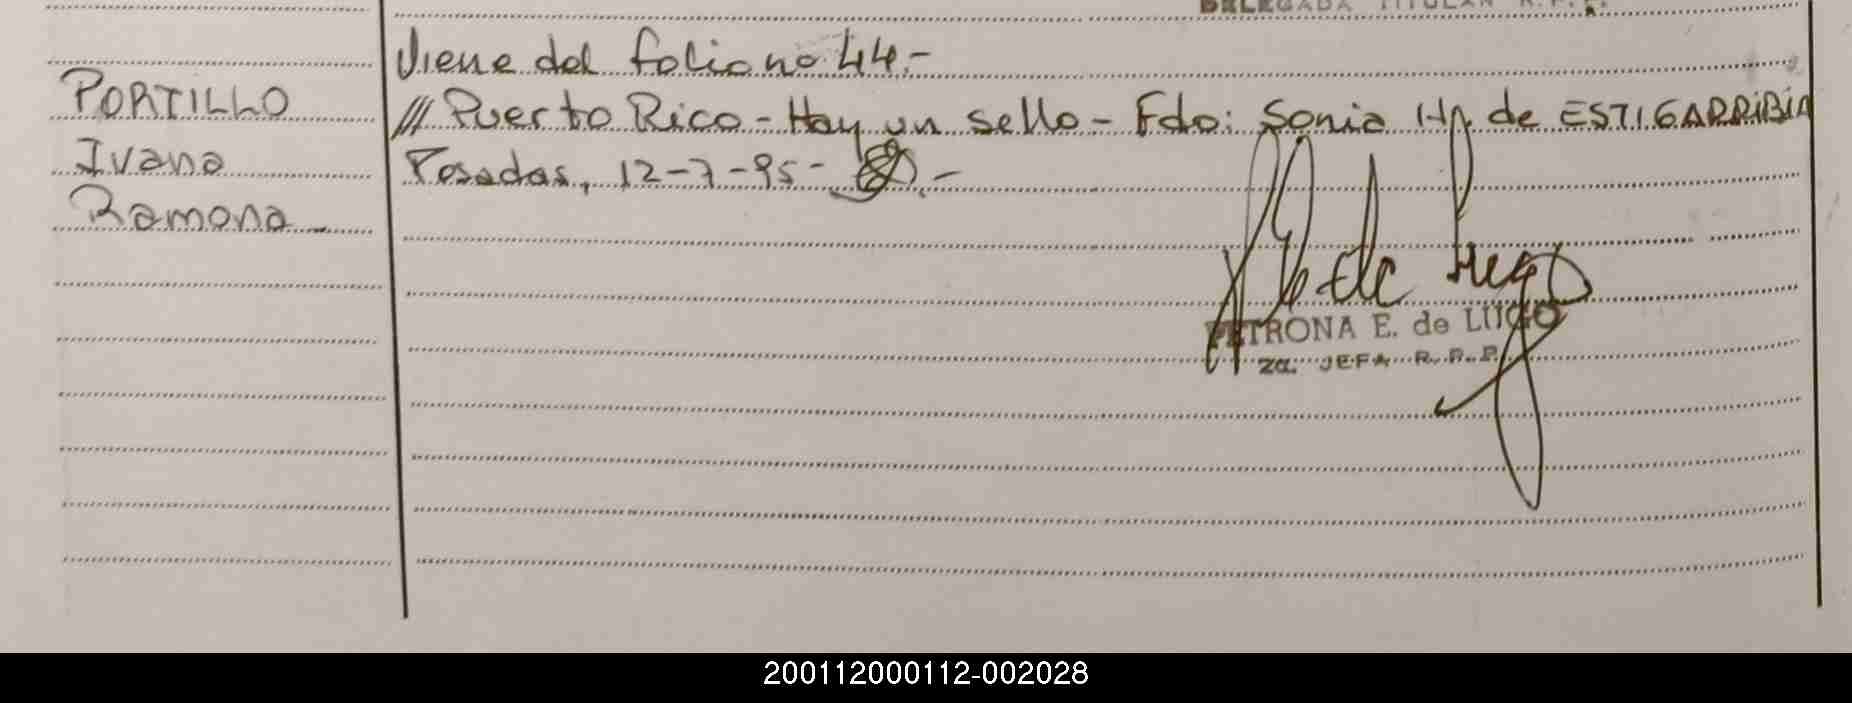 DELEGADA TITULAR R.P.P.
Viene del folio no 44.-
PORTILLO
/// Puerto Rico - Hay un sello - Fdo: Sonia Hp de ESTIGARRIBIA
Ivana
Posadas, 12-7-95- .-
Ramona
PETRONA E. de LUGO
2a. JEFA R.P.P.
200112000112-002028